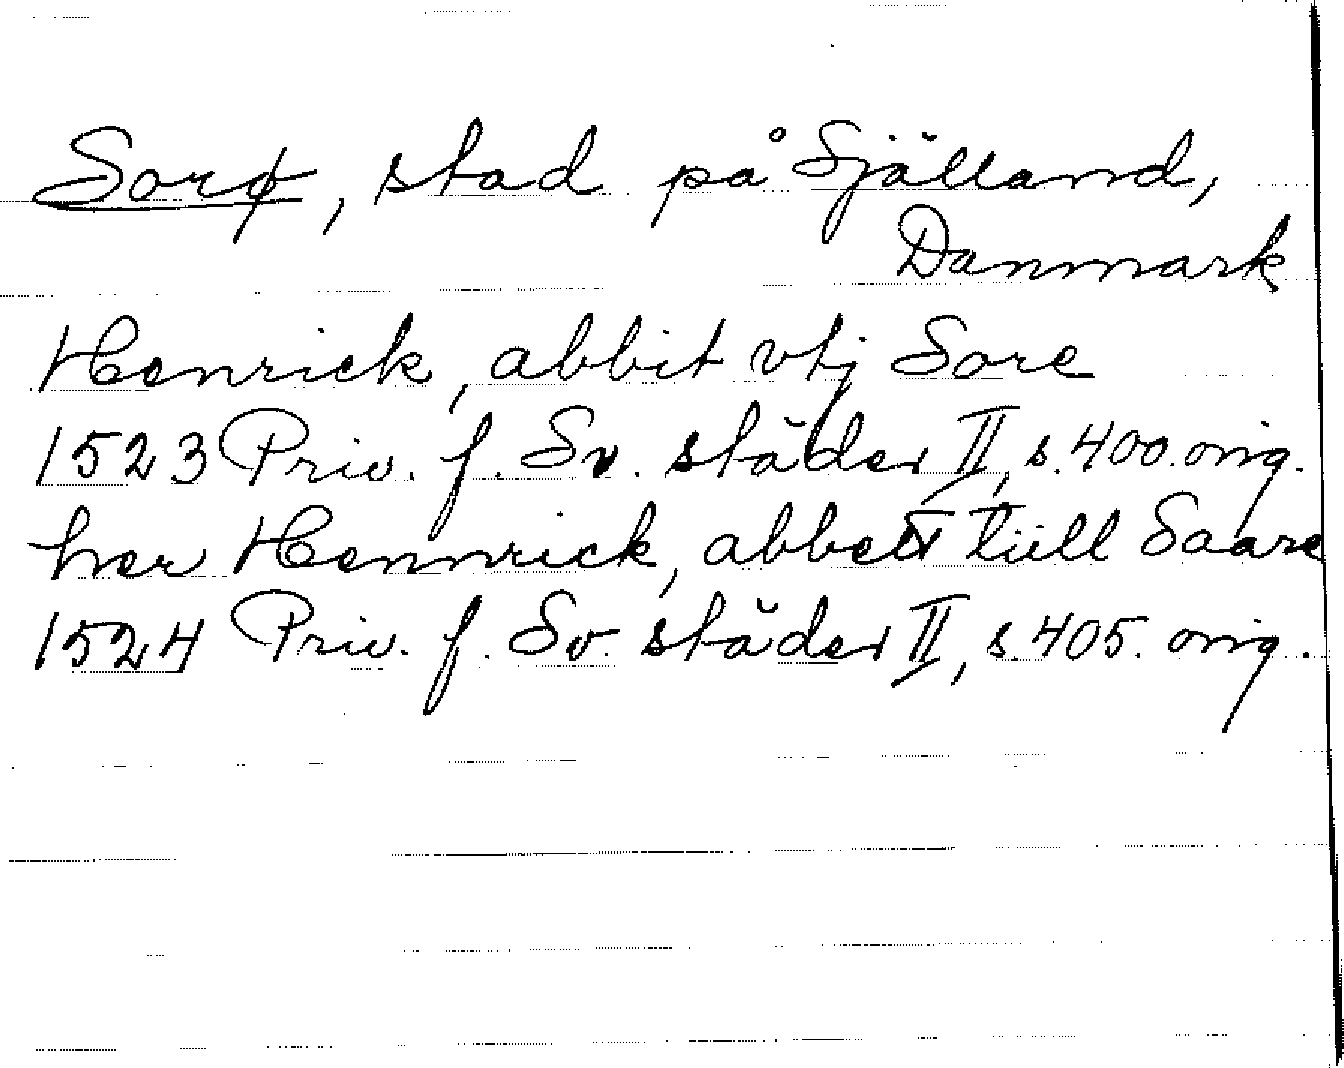 Sorø, stad på Sjålland,
Danmark
Henrick, abbit vtj Sore
1523 Priv. f. Sv. städer II, s. 400. orig.
her Hennrick, abbett tiill Saare
1524 Priv. f. Sv. städer II, s. 405. orig.